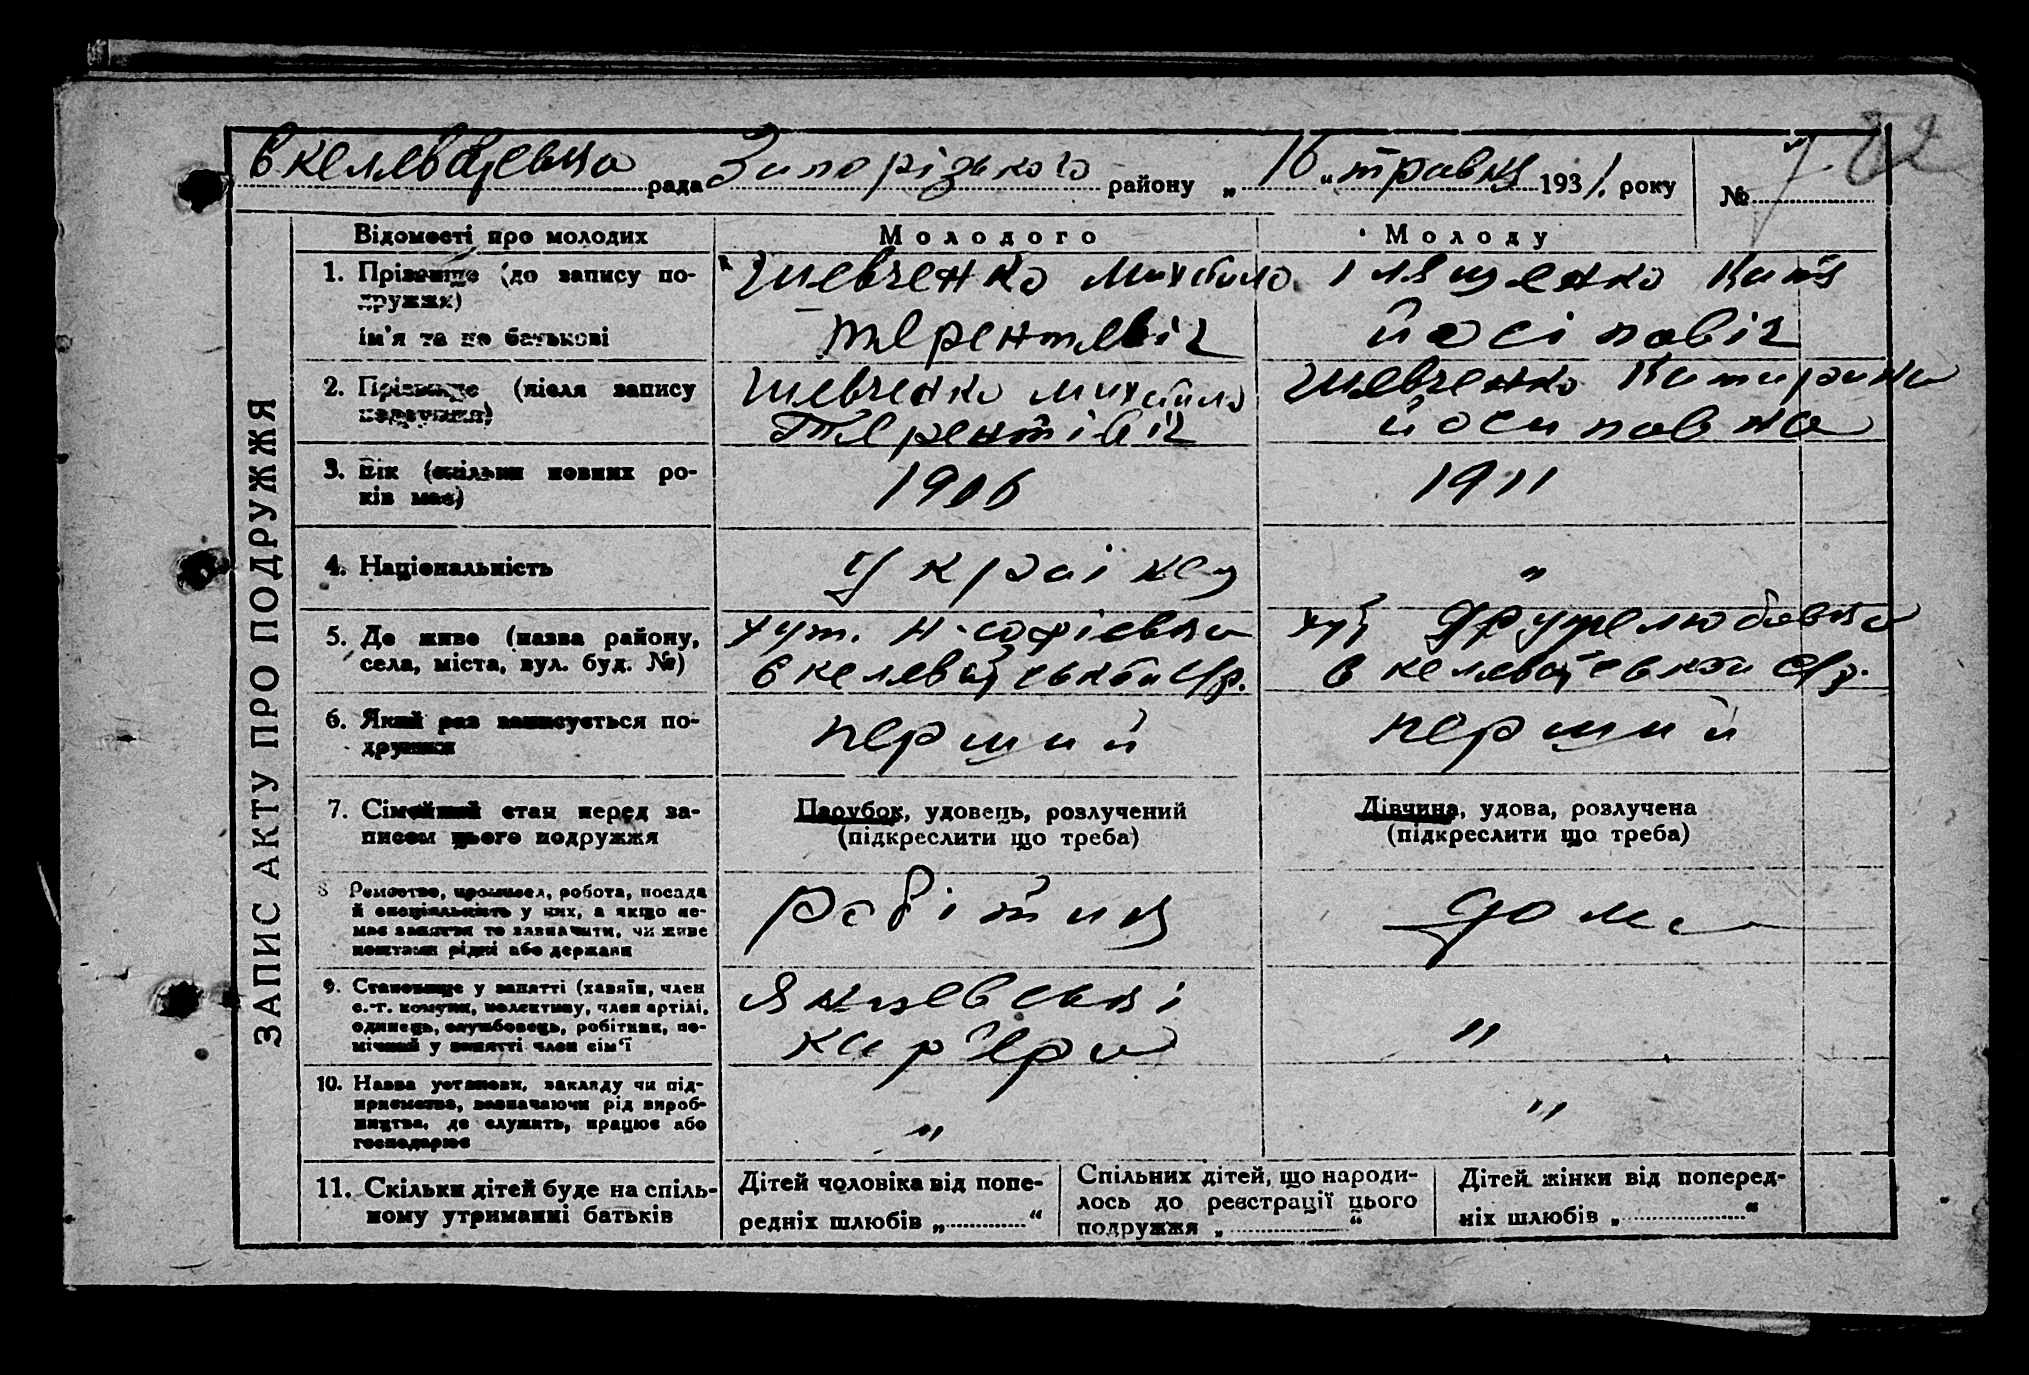 рада Запорізького району „ 16 “ травня 1931. року № 7 82
ЗАПИС АКТУ ПРО ПОДРУЖЖЯ
Відомості про молодих
Молодого
Молоду
1. Прізвище (до запису по-
дружжя)
ім'я та по батькові
Шевченко Михайло
терентевіч
Іляшенко Катя
йосіповіч
2. Прізвище (після запису
подружжя)
Шевченко михайло
Терентівіч
Шевченко Катирина
йосиповна
3. Вік (скільки повних ро-
ків має)
1906
1911
4. Національність
Украінец
„
5. Де живе (назва району,
села, міста, вул. буд. №)
хут. Н-софієвка
с/р.
хут Дружелюбовка
с/р.
6. Який раз записується по-
дружжя
перший
перший
7. Сімейний стан перед за-
писом цього подружжя
Парубок, удовець, розлучений
(підкреслити що треба)
Дівчина, удова, розлучена
(підкреслити що треба)
8 Ремество, промисел, робота, посада
й спеціяльність у них, а якщо не-
має заняття то зазначити, чи живе
коштами рідні або держави
робітник
дома
9. Становище у занятті (хазяїн, член
с.-г. комуни, колективу, член артілі,
одинець, службовець, робітник, по-
мічний у занятті член сім'ї
Янцевські
кар'ери
"
10. Назва установи, закладу чи під-
приємства, зазначаючи рід вироб-
ництва, де служить, працює або
господарює
„
"
11. Скільки дітей буде на спіль-
ному утриманні батьків
Дітей чоловіка від попе-
редніх шлюбів „..............“
Спільних дітей, що народи-
лось до реєстрації цього
подружжя „..............“
Дітей жінки від поперед-
ніх шлюбів „..............“